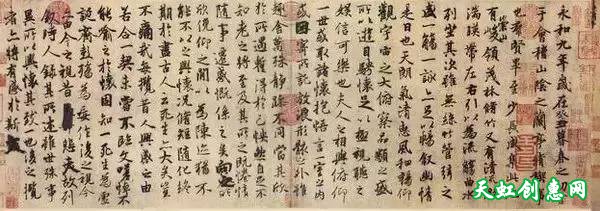 永和九年歲在癸丑暮春之初會
于會稽山陰之蘭亭脩稧事
也群賢畢至少長咸集此地
有崇山峻領茂林脩竹又有清流激
湍暎帶左右引以為流觴曲水
列坐其次雖無絲竹管弦之
盛一觴一詠亦足以暢叙幽情
是日也天朗氣清惠風和暢仰
觀宇宙之大俯察品類之盛
所以遊目騁懷足以極視聽之
娛信可樂也夫人之相與俯仰
一世或取諸懷抱悟言一室之內
或因寄所託放浪形骸之外雖
趣舍萬殊靜躁不同當其欣
於所遇蹔得於己怏然自足不
知老之將至及其所之既惓情
隨事遷感慨係之矣向之所
欣俛仰之閒以為陳迹猶不
能不以之興懷況脩短隨化終
期於盡古人云死生亦大矣豈
不痛哉每攬昔人興感之由
若合一契未嘗不臨文嗟悼不
能喻之於懷固知一死生為虛
誕齊彭殤為妄作後之視今
亦由今之視昔悲夫故列
叙時人錄其所述雖世殊事
異所以興懷其致一也後之攬
者亦將有感於斯文
天虹创惠网